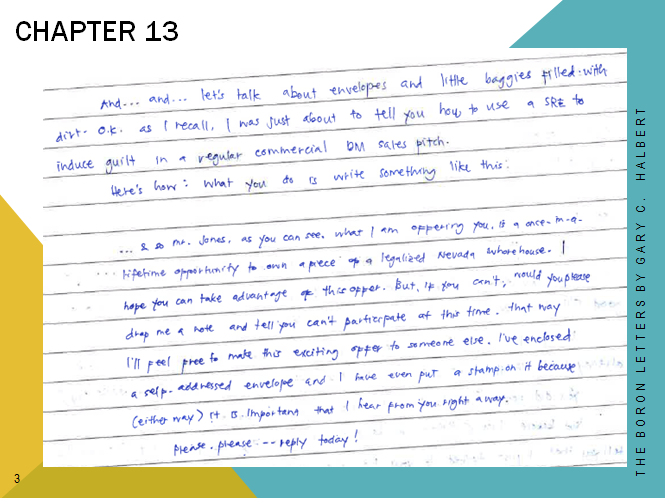 CHAPTER 13
And... and... let's talk about envelopes and little baggies filled with
dirt. O.K. as I recall, I was just about to tell you how to use a SRE to
induce guilt in a regular commercial DM sales pitch.
Here's how: what you do is write something like this:
... & so Mr. Jones, as you can see, what I am offering you, is a once-in-a-
lifetime opportunity to own a piece of a legalized Nevada whorehouse. I
hope you can take advantage of this offer. But, if you can't, would you please
drop me a note and tell you can't participate at this time. that way
I'll feel free to make this exciting offer to someone else. I've enclosed
a self-addressed envelope and I have even put a stamp on it because
(either way) it is important that I hear from you right away.
Please, please -- reply today!
THE BORON LETTERS BY GARY C. HALBERT
3